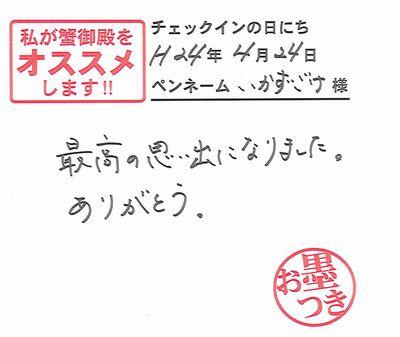 私が蟹御殿を
オススメ
します!!
チェックインの日にち
H24年4月24日
ペンネーム いかずごけ 様
最高の思い出になりました。
ありがとう。
お墨つき